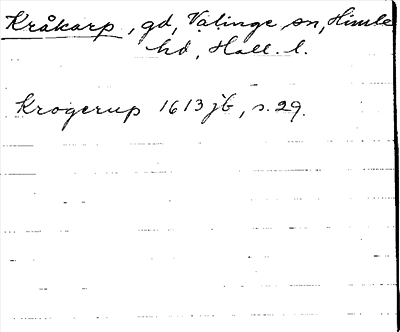 Kråkarp, gd, Valinge sn, Himle
hd, Hall. l.
Krogerup 1613 jb, s. 29.